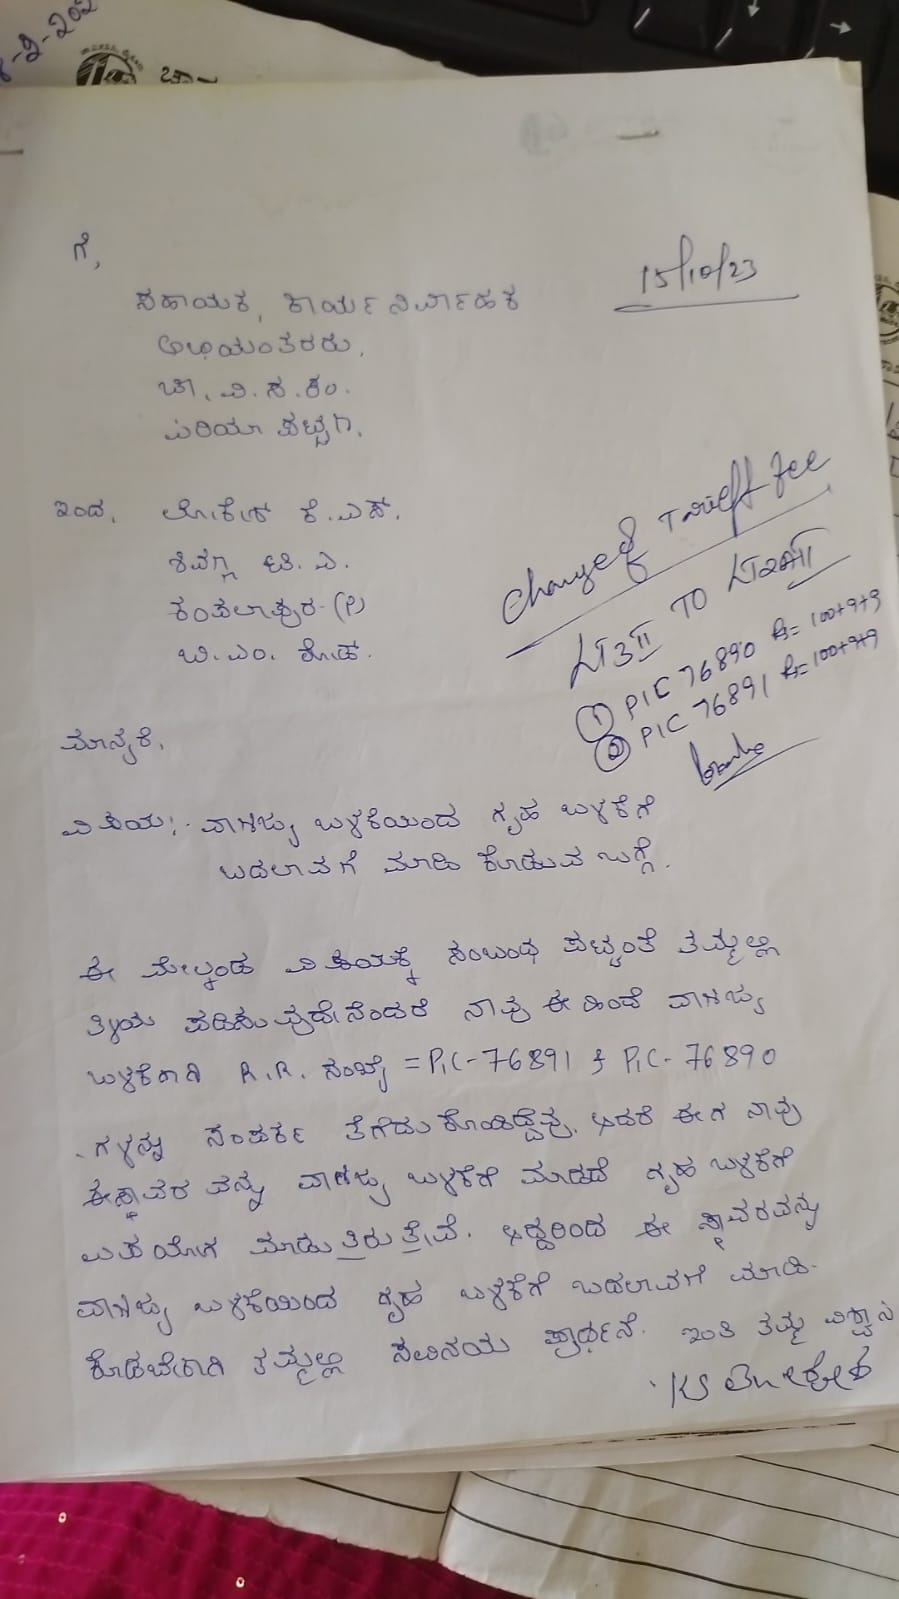 ಗೆ,
15/10/23
ಸಹಾಯಕ, ಕಾರ್ಯನಿರ್ವಾಹಕ
ಅಭಿಯಂತರರು,
ಚಾ. ವಿ. ಸ. ಕಂ.
ಪಿರಿಯಾ ಪಟ್ಟಣ.
ಇಂದ, ಲೋಕೇಶ್ ಕೆ.ಎಸ್.
ಶಿವಣ್ಣ ಟಿ. ಎ.
ಕಂಪಲಾಪುರ-(ಗ್ರಾ)
ಬಿ. ಎಂ. ರೋಡ್.
Change of Tariff fee
LT3II TO LT2AII
① PIC 76890 Rs= 100+9+9
② PIC 76891 Rs=100+9+9
ಮಾನ್ಯರೆ,
ವಿಷಯ:- ವಾಣಿಜ್ಯ ಬಳಕೆಯಿಂದ ಗೃಹ ಬಳಕೆಗೆ
ಬದಲಾವಣೆ ಮಾಡಿ ಕೊಡುವ ಬಗ್ಗೆ.
ಈ ಮೇಲ್ಕಂಡ ವಿಷಯಕ್ಕೆ ಸಂಬಂಧ ಪಟ್ಟಂತೆ ತಮ್ಮಲ್ಲಿ
ತಿಳಿಯ ಪಡಿಸುವುದೇನೆಂದರೆ ನಾವು ಈ ಹಿಂದೆ ವಾಣಿಜ್ಯ
ಬಳಕೆಗಾಗಿ R.R. ಸಂಖ್ಯೆ = PIC-76891 & PIC-76890
ಗಳನ್ನು ಸಂಪರ್ಕ ತೆಗೆದುಕೊಂಡಿದ್ದೆವು. ಆದರೆ ಈಗ ನಾವು
ಈ ಸ್ಥಾವರ ವನ್ನು ವಾಣಿಜ್ಯ ಬಳಕೆಗೆ ಮಾಡದೆ ಗೃಹ ಬಳಕೆಗೆ
ಉಪಯೋಗ ಮಾಡುತ್ತಿರುತ್ತೇವೆ. ಆದ್ದರಿಂದ ಈ ಸ್ಥಾವರವನ್ನು
ವಾಣಿಜ್ಯ ಬಳಕೆಯಿಂದ ಗೃಹ ಬಳಕೆಗೆ ಬದಲಾವಣೆ ಮಾಡಿ-
ಕೊಡಬೇಕಾಗಿ ತಮ್ಮಲ್ಲಿ ಸವಿನಯ ಪ್ರಾರ್ಥನೆ. ಇಂತಿ ತಮ್ಮ ವಿಶ್ವಾಸಿ
KS ಲೋಕೇಶ